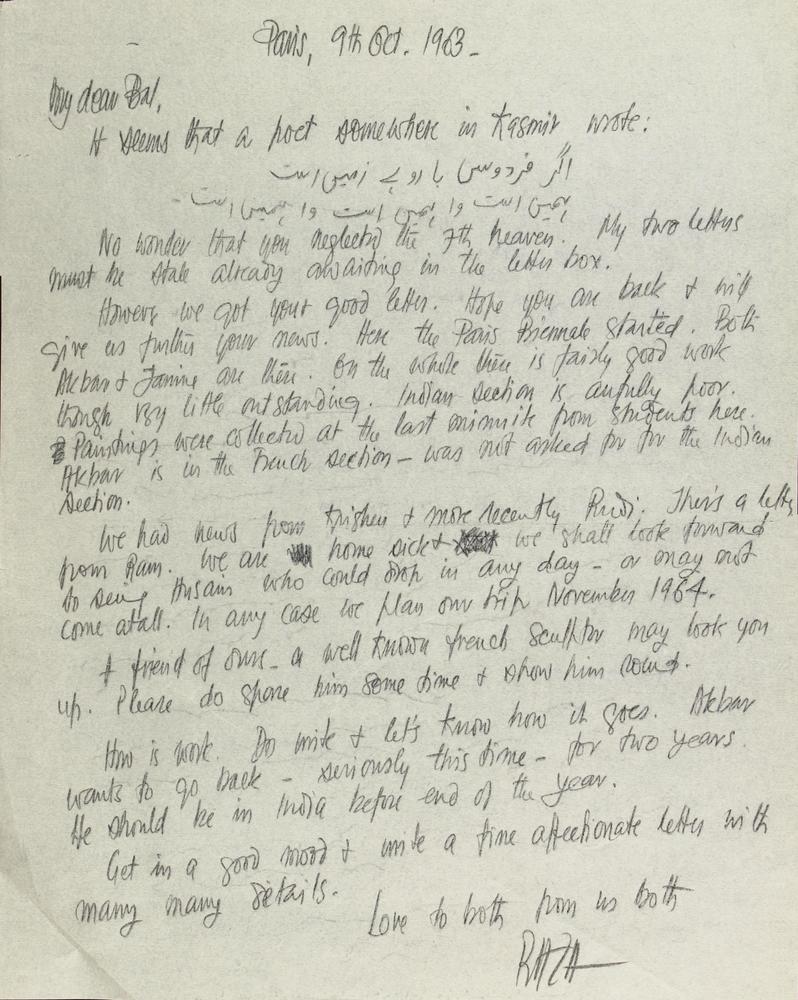 Paris, 9th Oct. 1963 -
My dear Bal,
It seems that a poet somewhere in Kasmir wrote:
اگر فردوسی با روے زمین است
ہمین است وا ہمین است وا ہمین است -
No wonder that you neglected the 7th heaven. My two letters
must be stale already awaiting in the letter box.
However we got your good letter. Hope you are back & will
give us further your news. Here the Paris Biennale started. Both
Akbar & Janine are there. On the whole there is fairly good work
though very little outstanding. Indian section is awfully poor.
Paintings were collected at the last minimite from students here.
Akbar is in the French section - was not asked for for the Indian
section.
We had news from Krishen & more recently Rudi. There's a letter
from Ram. We are home sick & we shall look forward
to seeing Husain who could drop in any day - or may not
come atall. In any case we plan our trip November 1964.
A friend of ours - a well known french sculptor may look you
up. Please do spare him some time & show him round.
How is work. Do write & let's know how it goes. Akbar
wants to go back - seriously this time - for two years.
He should be in India before end of the year.
Get in a good mood & write a fine affectionate letter with
many many details.
Love to both from us both
RAZA